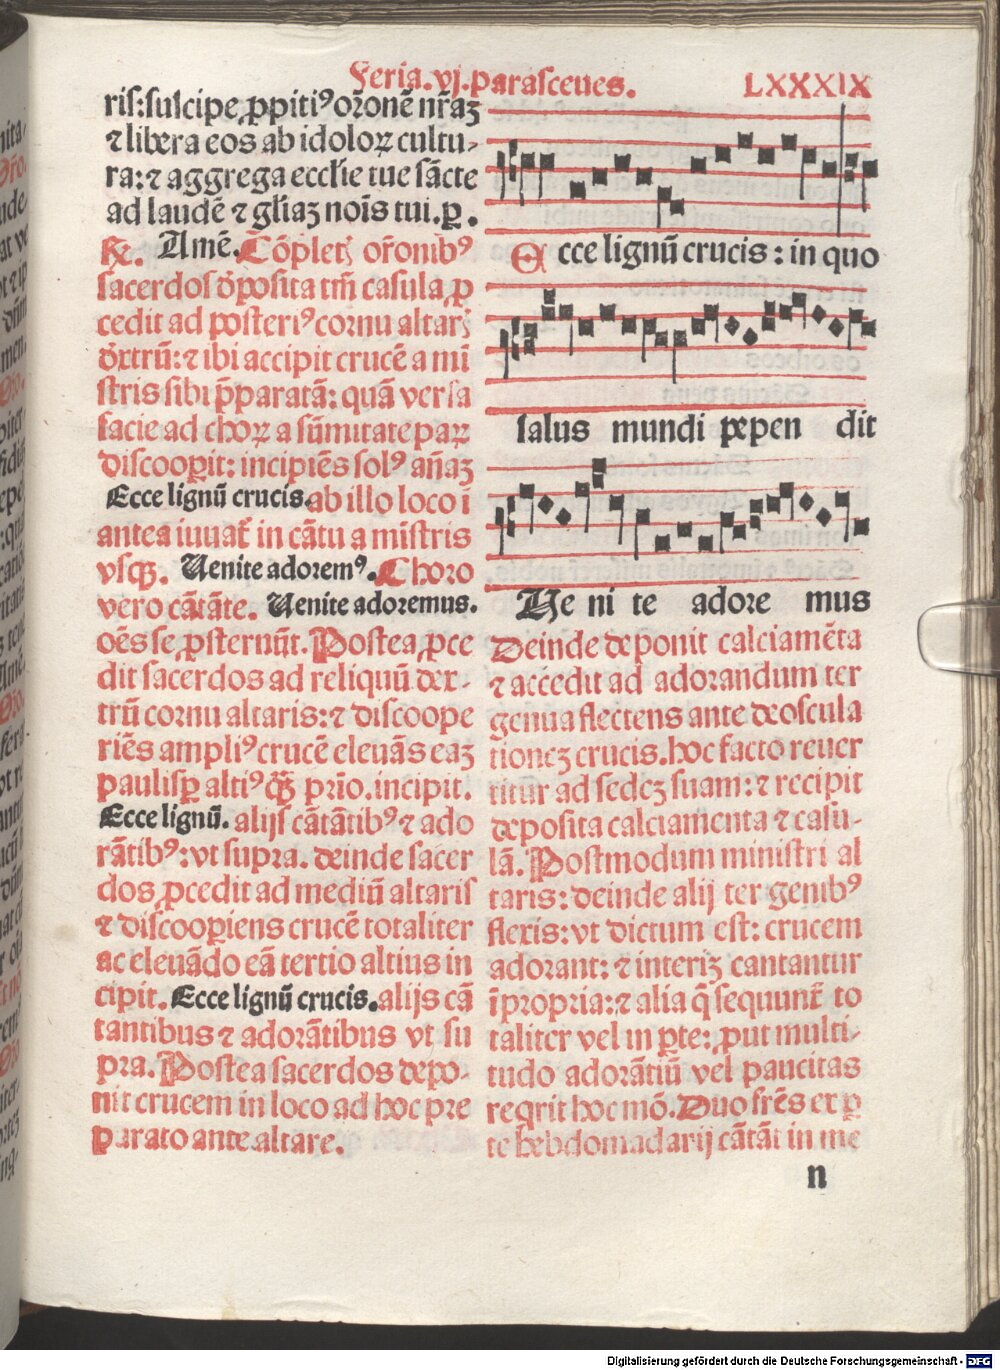 Feria.vj.parasceues. LXXXIX
ris:suscipe ꝓpitiꝰ or̃onẽ nr̃aꝫ
⁊ libera eos ab idoloꝝ cultu-
ra:⁊ aggrega eccl̃ie tue sãcte
ad laudẽ ⁊ gl̃iaꝫ noĩs tui.ꝑ.
℟. Amẽ. Cõpletꝭ or̃onibꝰ
sacerdos d̕posita tm̃ casula ꝓ
cedit ad posteriꝰ cornu altarꝭ
d̕xtrũ:⁊ ibi accipit crucẽ a mi
stris sibi p̃paratã: quã versa
facie ad choꝝ a sũmitate paꝝ
discooꝑit: incipiẽs solꝰ añaꝫ
Ecce lignũ crucis. ab illo loco ĩ
antea iuuat᷑ in cãtu a mistris
vsqꝫ. Uenite adoremꝰ. Choro
vero cãtãte. Uenite adoremus.
oẽs se ꝓsternũt. Postea ꝓce
dit sacerdos ad reliquũ dex-
trũ cornu altaris:⁊ discoope
riẽs ampliꝰ crucẽ eleuãs eaꝫ
paulisꝑ altiꝰ qꝫ̃ prĩo.incipit.
Ecce lignũ. alijs cãtãtibꝰ ⁊ ado
rãtibꝰ:vt supra. deinde sacer
dos ꝓcedit ad mediũ altaris
⁊ discooꝑiens crucẽ totaliter
ac eleuãdo eã tertio altius in
cipit. Ecce lignũ crucis. alijs cã
tantibus ⁊ adorãtibus vt su
pra. Postea sacerdos depo-
nit crucem in loco ad hoc pre
parato ante altare.
Ecce lignũ crucis: in quo
salus mundi pepen dit
Ve ni te adore mus
Deinde deponit calciamẽta
⁊ accedit ad adorandum ter
genua flectens ante deoscula
tioneꝫ crucis.hoc facto reuer
titur ad sedeꝫ suam:⁊ recipit
deposita calciamenta ⁊ casu-
lã. Postmodum ministri al
taris: deinde alij ter genibꝰ
flexis: vt dictum est: crucem
adorant: ⁊ interiꝫ cantantur
ĩpropria:⁊ alia q̃ sequunt᷑ to
taliter vel in ꝑte: ꝓut multi-
tudo adorãtiũ vel paucitas
reqrit hoc mõ. Duo fr̃es ex ꝑ
te hebdomadarij cãtãt in me
n
Digitalisierung gefördert durch die Deutsche Forschungsgemeinschaft - DFG